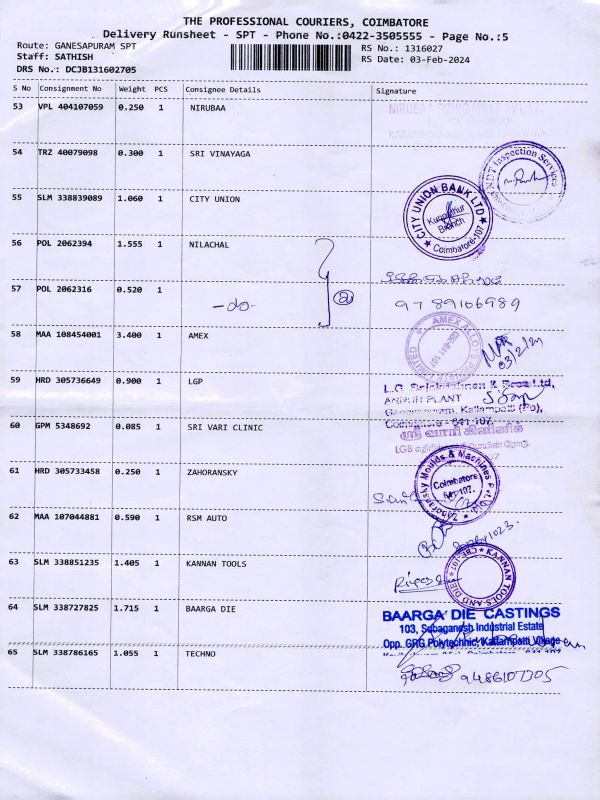 THE PROFESSIONAL COURIERS, COIMBATORE
Delivery Runsheet - SPT - Phone No.:0422-3505555 - Page No.:5
Route: GANESAPURAM SPT
RS No.: 1316027
Staff: SATHISH
RS Date: 03-Feb-2024
DRS No.: DCJB131602705
S No Consignment No Weight PCS Consignee Details Signature
53 VPL 404107059 0.250 1 NIRUBAA
54 TRZ 40079098 0.300 1 SRI VINAYAGA
Inspection Services
55 SLM 338839089 1.060 1 CITY UNION
CITY UNION BANK LTD
Branch
Coimbatore-107
56 POL 2062394 1.555 1 NILACHAL
57 POL 2062316 0.520 1
-do-
9789106989
58 MAA 108454001 3.400 1 AMEX
AMEX ALLOYS
03/2/24
59 HRD 305736649 0.900 1 LGP
L.G. & Bros Ltd,
PLANT
Kallampatti (Po),
Coimbatore - 641 107.
60 GPM 5348692 0.085 1 SRI VARI CLINIC
ஸ்ரீ வாரி கிளினிக்
LGB
61 HRD 305733458 0.250 1 ZAHORANSKY
Zahoransky Moulds & Machines Pvt. Ltd.
Coimbatore
107.
62 MAA 107044881 0.590 1 RSM AUTO
63 SLM 338851235 1.405 1 KANNAN TOOLS
KANNAN TOOLS AND DIES
64 SLM 338727825 1.715 1 BAARGA DIE
BAARGA DIE CASTINGS
103, Subaganesh Industrial Estate
Opp. GRG Polytechnic, Kallampatti Village
65 SLM 338786165 1.055 1 TECHNO
9486107305